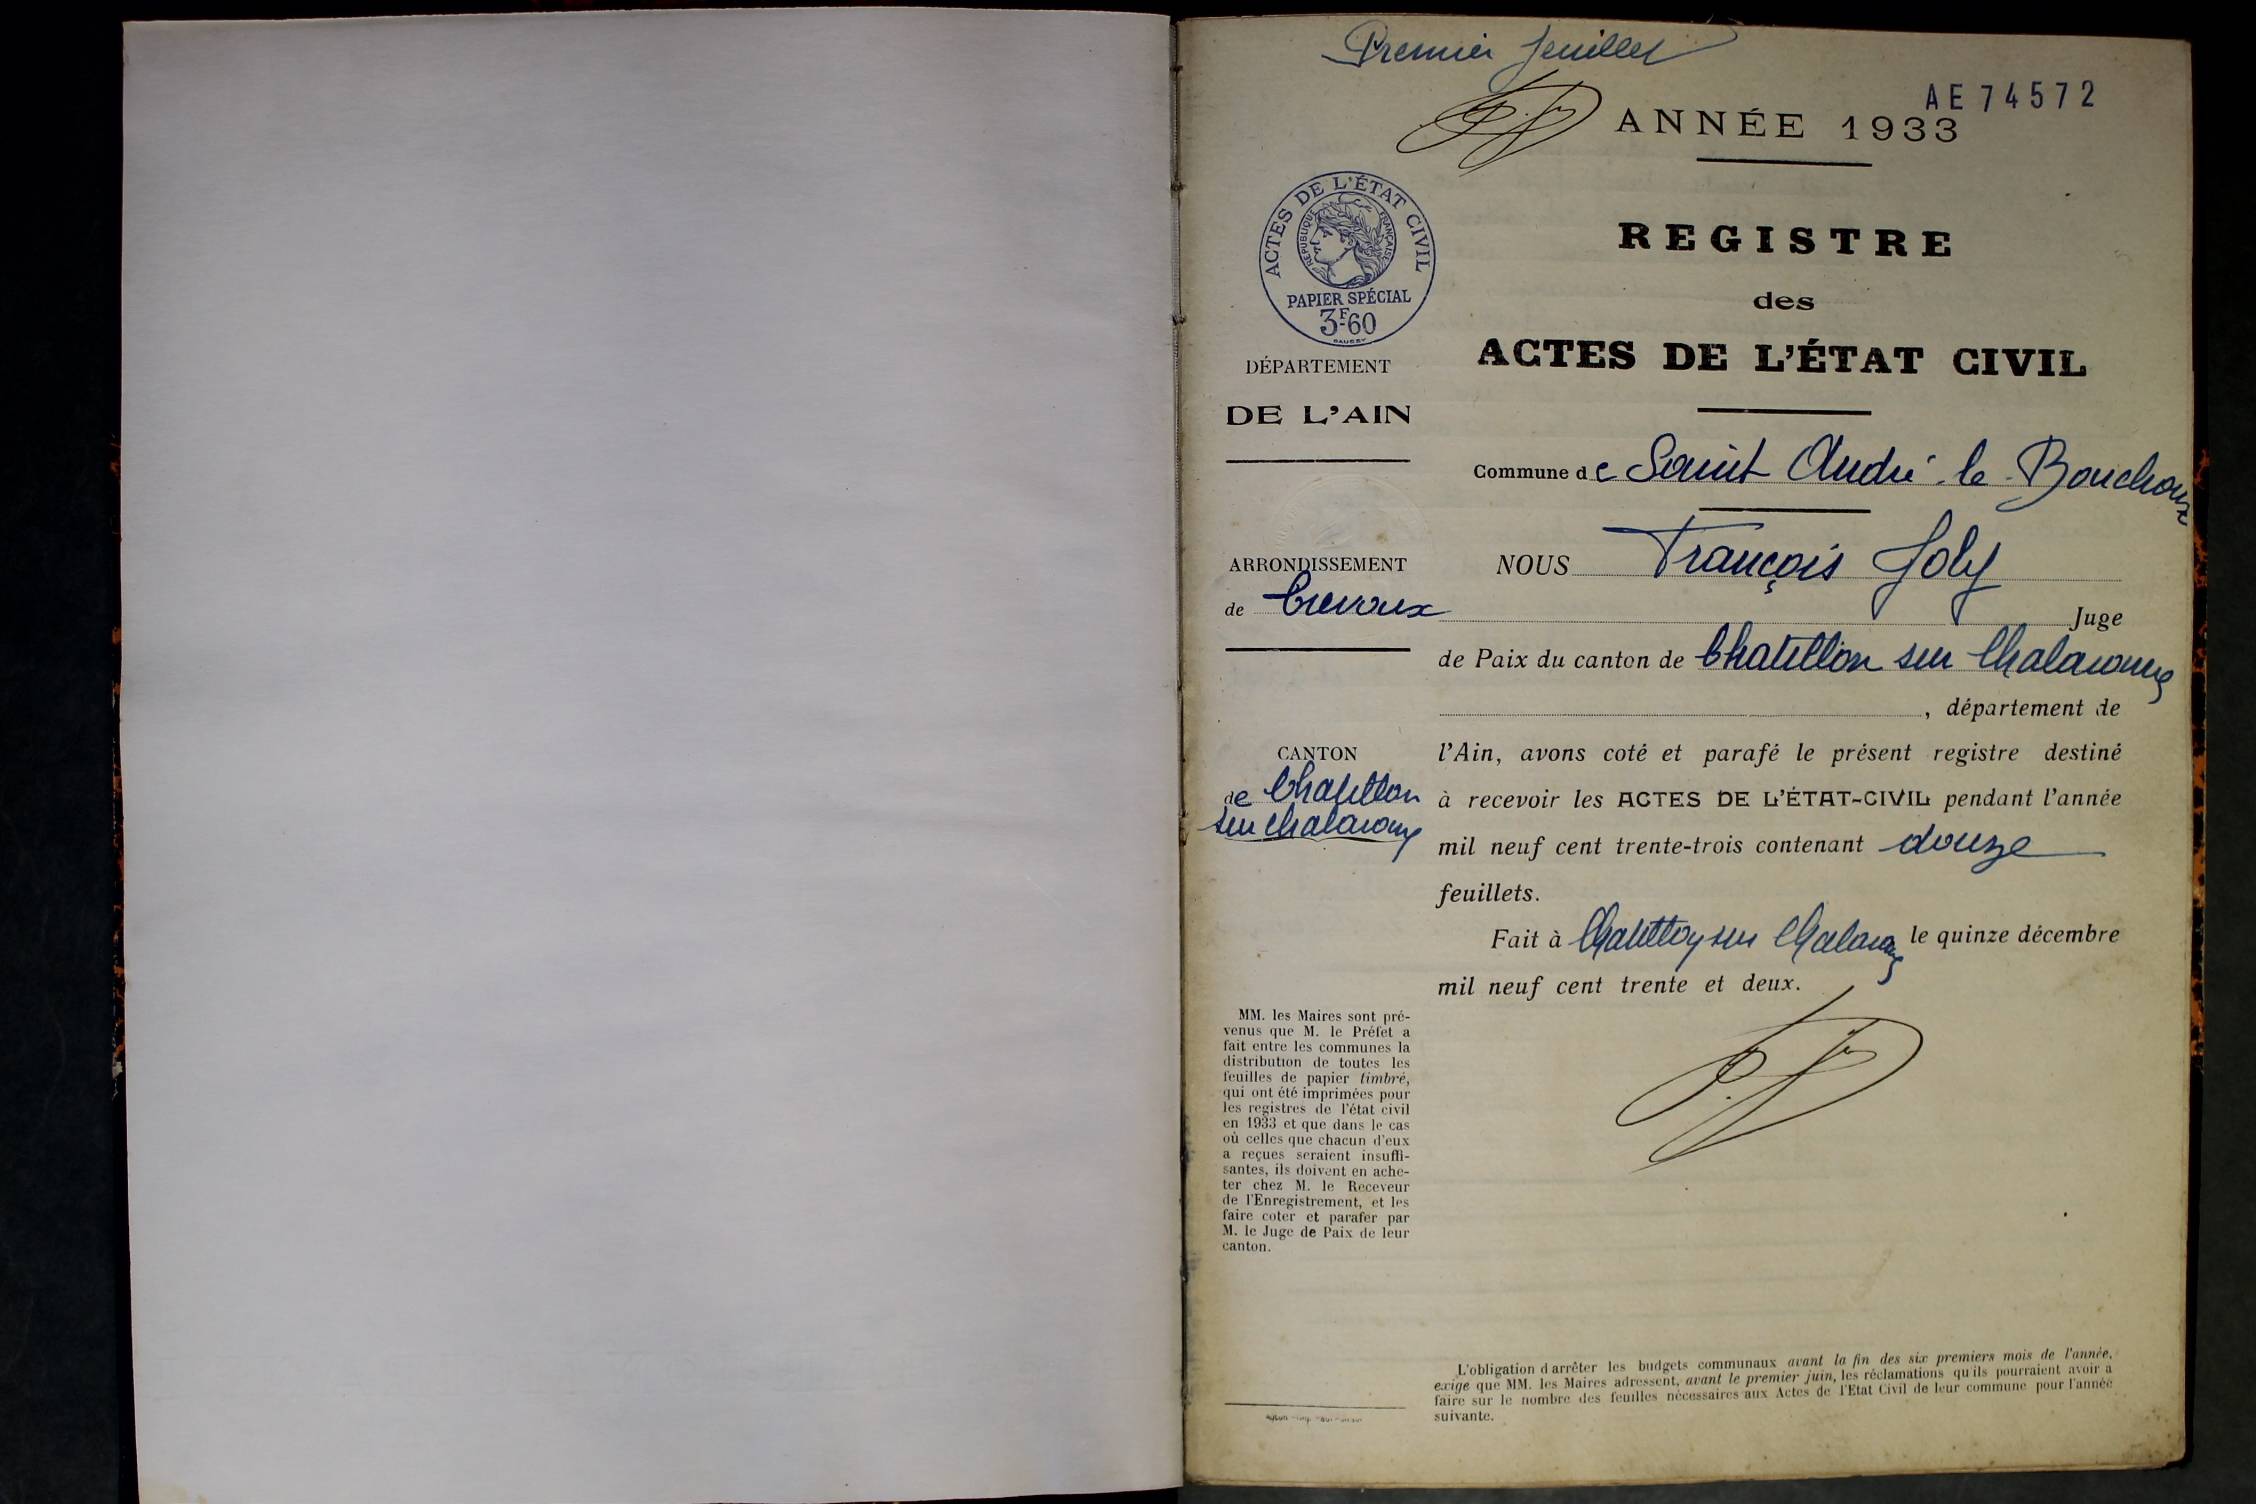 Premier feuillet
AE 74572
ANNÉE 1933
ACTES DE L'ÉTAT CIVIL
RÉPUBLIQUE FRANÇAISE
PAPIER SPÉCIAL
3F60
REGISTRE
des
ACTES DE L'ÉTAT CIVIL
DÉPARTEMENT
DE L'AIN
Commune de Saint André le Bouchoux
ARRONDISSEMENT
de Trevoux
CANTON
de Chatillon
sur Chalaronne
NOUS François Joly
Juge
de Paix du canton de Chatillon sur Chalaronne
, département de
l'Ain, avons coté et parafé le présent registre destiné
à recevoir les ACTES DE L'ÉTAT-CIVIL pendant l'année
mil neuf cent trente-trois contenant douze
feuillets.
Fait à Chatillon sur Chalaronne le quinze décembre
mil neuf cent trente et deux.
MM. les Maires sont pré-
venus que M. le Préfet a
fait entre les communes la
distribution de toutes les
feuilles de papier timbré,
qui ont été imprimées pour
les registres de l'état civil
en 1933 et que dans le cas
où celles que chacun d'eux
a reçues seraient insuffi-
santes, ils doivent en ache-
ter chez M. le Receveur
de l'Enregistrement, et les
faire coter et parafer par
M. le Juge de Paix de leur
canton.
L'obligation d'arrêter les budgets communaux avant la fin des six premiers mois de l'année,
exige que MM. les Maires adressent, avant le premier juin, les réclamations qu'ils pourraient avoir à
faire sur le nombre des feuilles nécessaires aux Actes de l'Etat Civil de leur commune pour l'année
suivante.